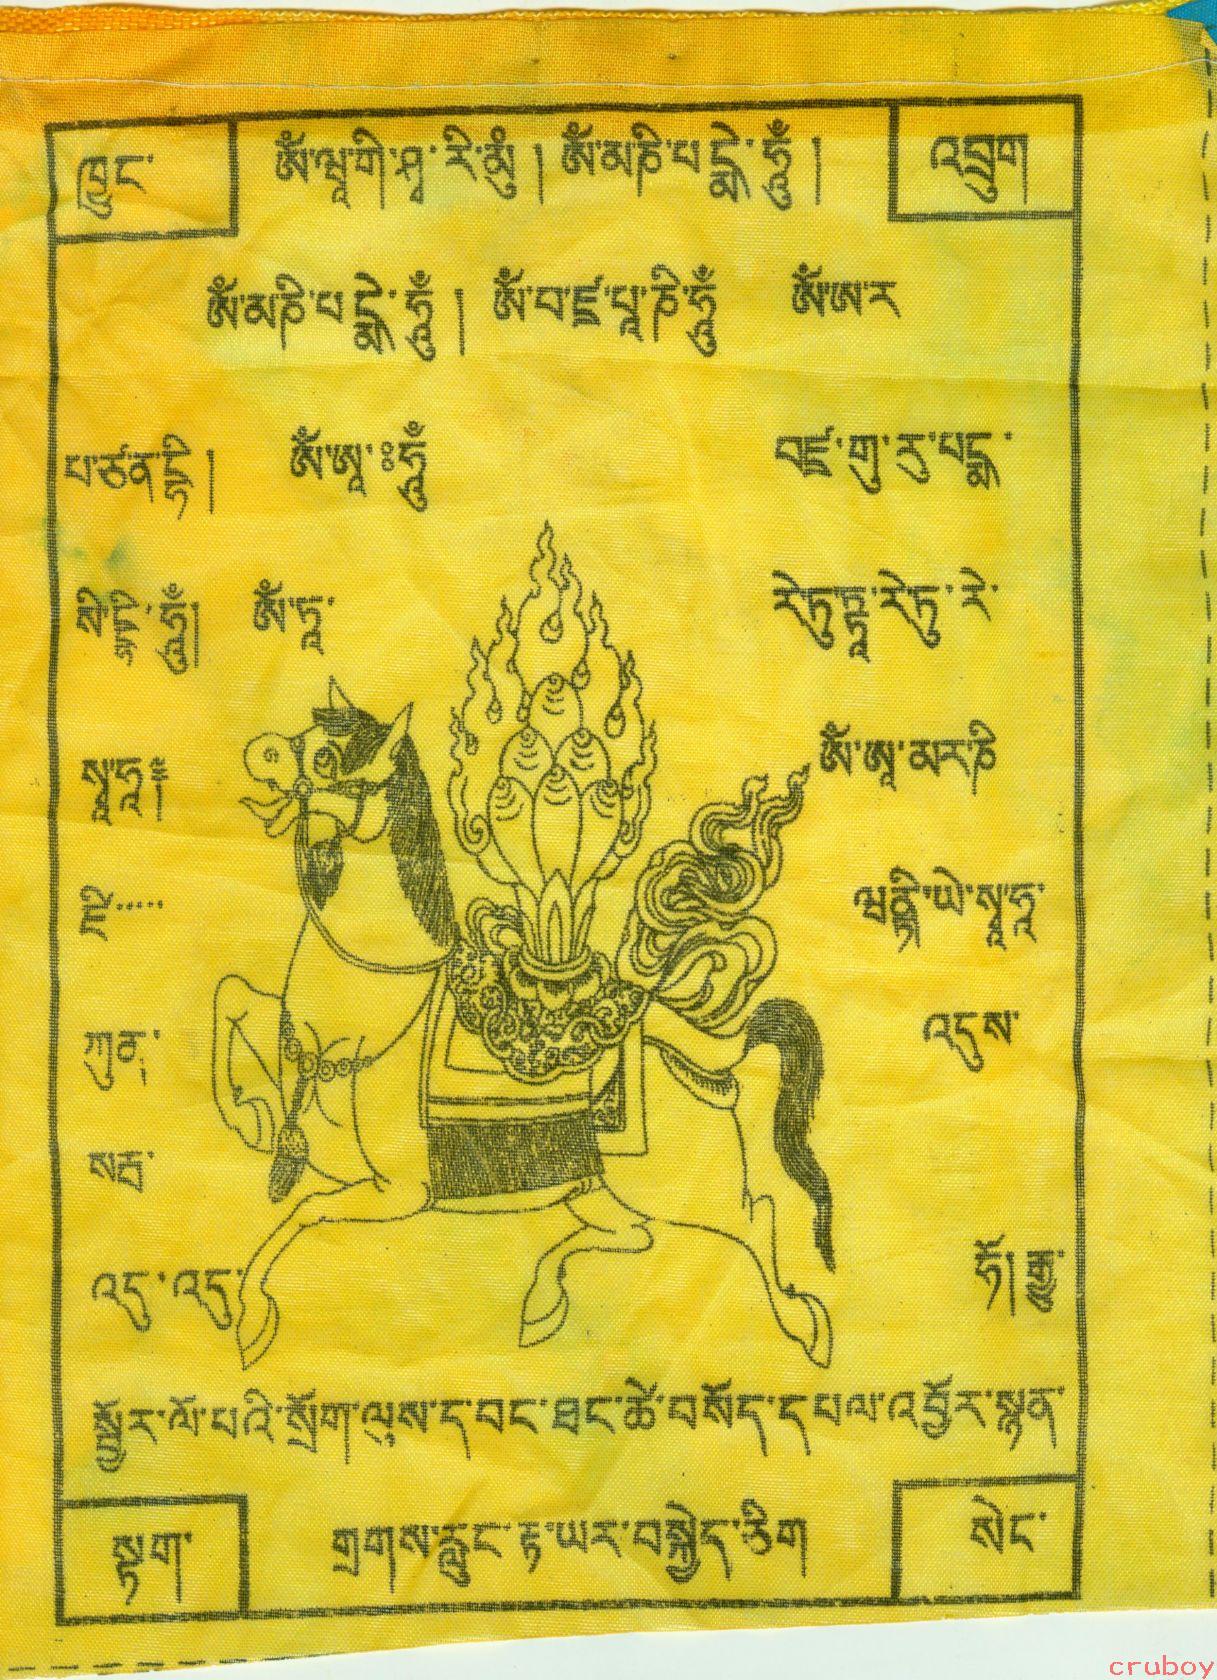 ཁྱུང་ ཨོཾ་ཝཱ་གི་ཤྭ་རི་མུཾ། ཨོཾ་མ་ཎི་པདྨེ་ཧཱུྃ། འབྲུག
ཨོཾ་མ་ཎི་པདྨེ་ཧཱུྃ། ཨོཾ་བ་ཛྲ་པཱ་ཎི་ཧཱུྃ ཨོཾ་ཨ་ར
པ་ཙ་ན་དྷི། ཨོཾ་ཨཱ་ཿཧཱུྃ བཛྲ་གུ་རུ་པདྨ་
སི་དྡྷི་ཧཱུྃ། ཨོཾ་ཏཱ་ རེཏུཏྟཱ་རེཏུ་རེ་
སྭཱ་ཧཱ༔ ཨོཾ་ཨཱ་མ་ར་ཎི
ཛཱིཝནྟི་ཡེ་སྭཱཧཱ་
འདུས་
ཀུན་
སརྦ་
འདུ་འདུ་ ཧོ།
སྦྱོར་ལོ་པའི་སྲོག་ལུས་དབང་ཐང་ཆེ་བསོད་དཔལ་འབྱོར་སྙན་
སྟག་ གྲགས་རླུང་རྟ་ཡར་བསྐྱེད་ཅིག སེང་
cruboy